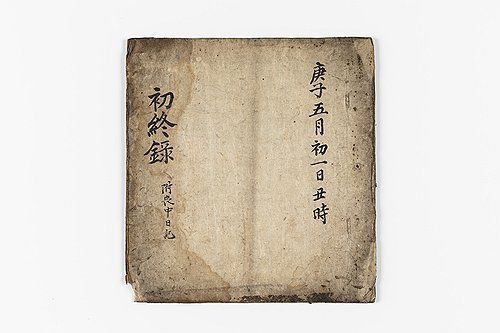 庚子五月初一日丑時
初終錄
附良中日記